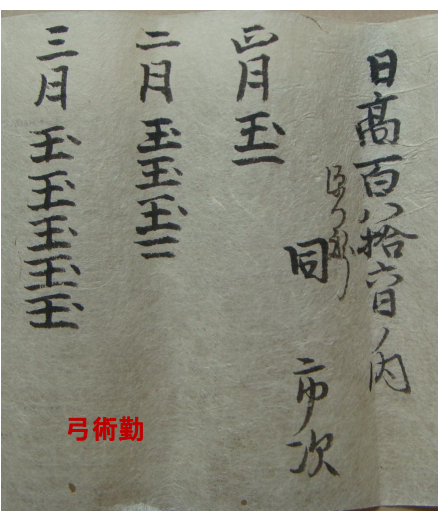 日高百八拾六日ノ内
同 市次
正月 玉一
二月 玉玉玉三
三月 玉玉玉玉玉
弓術勤